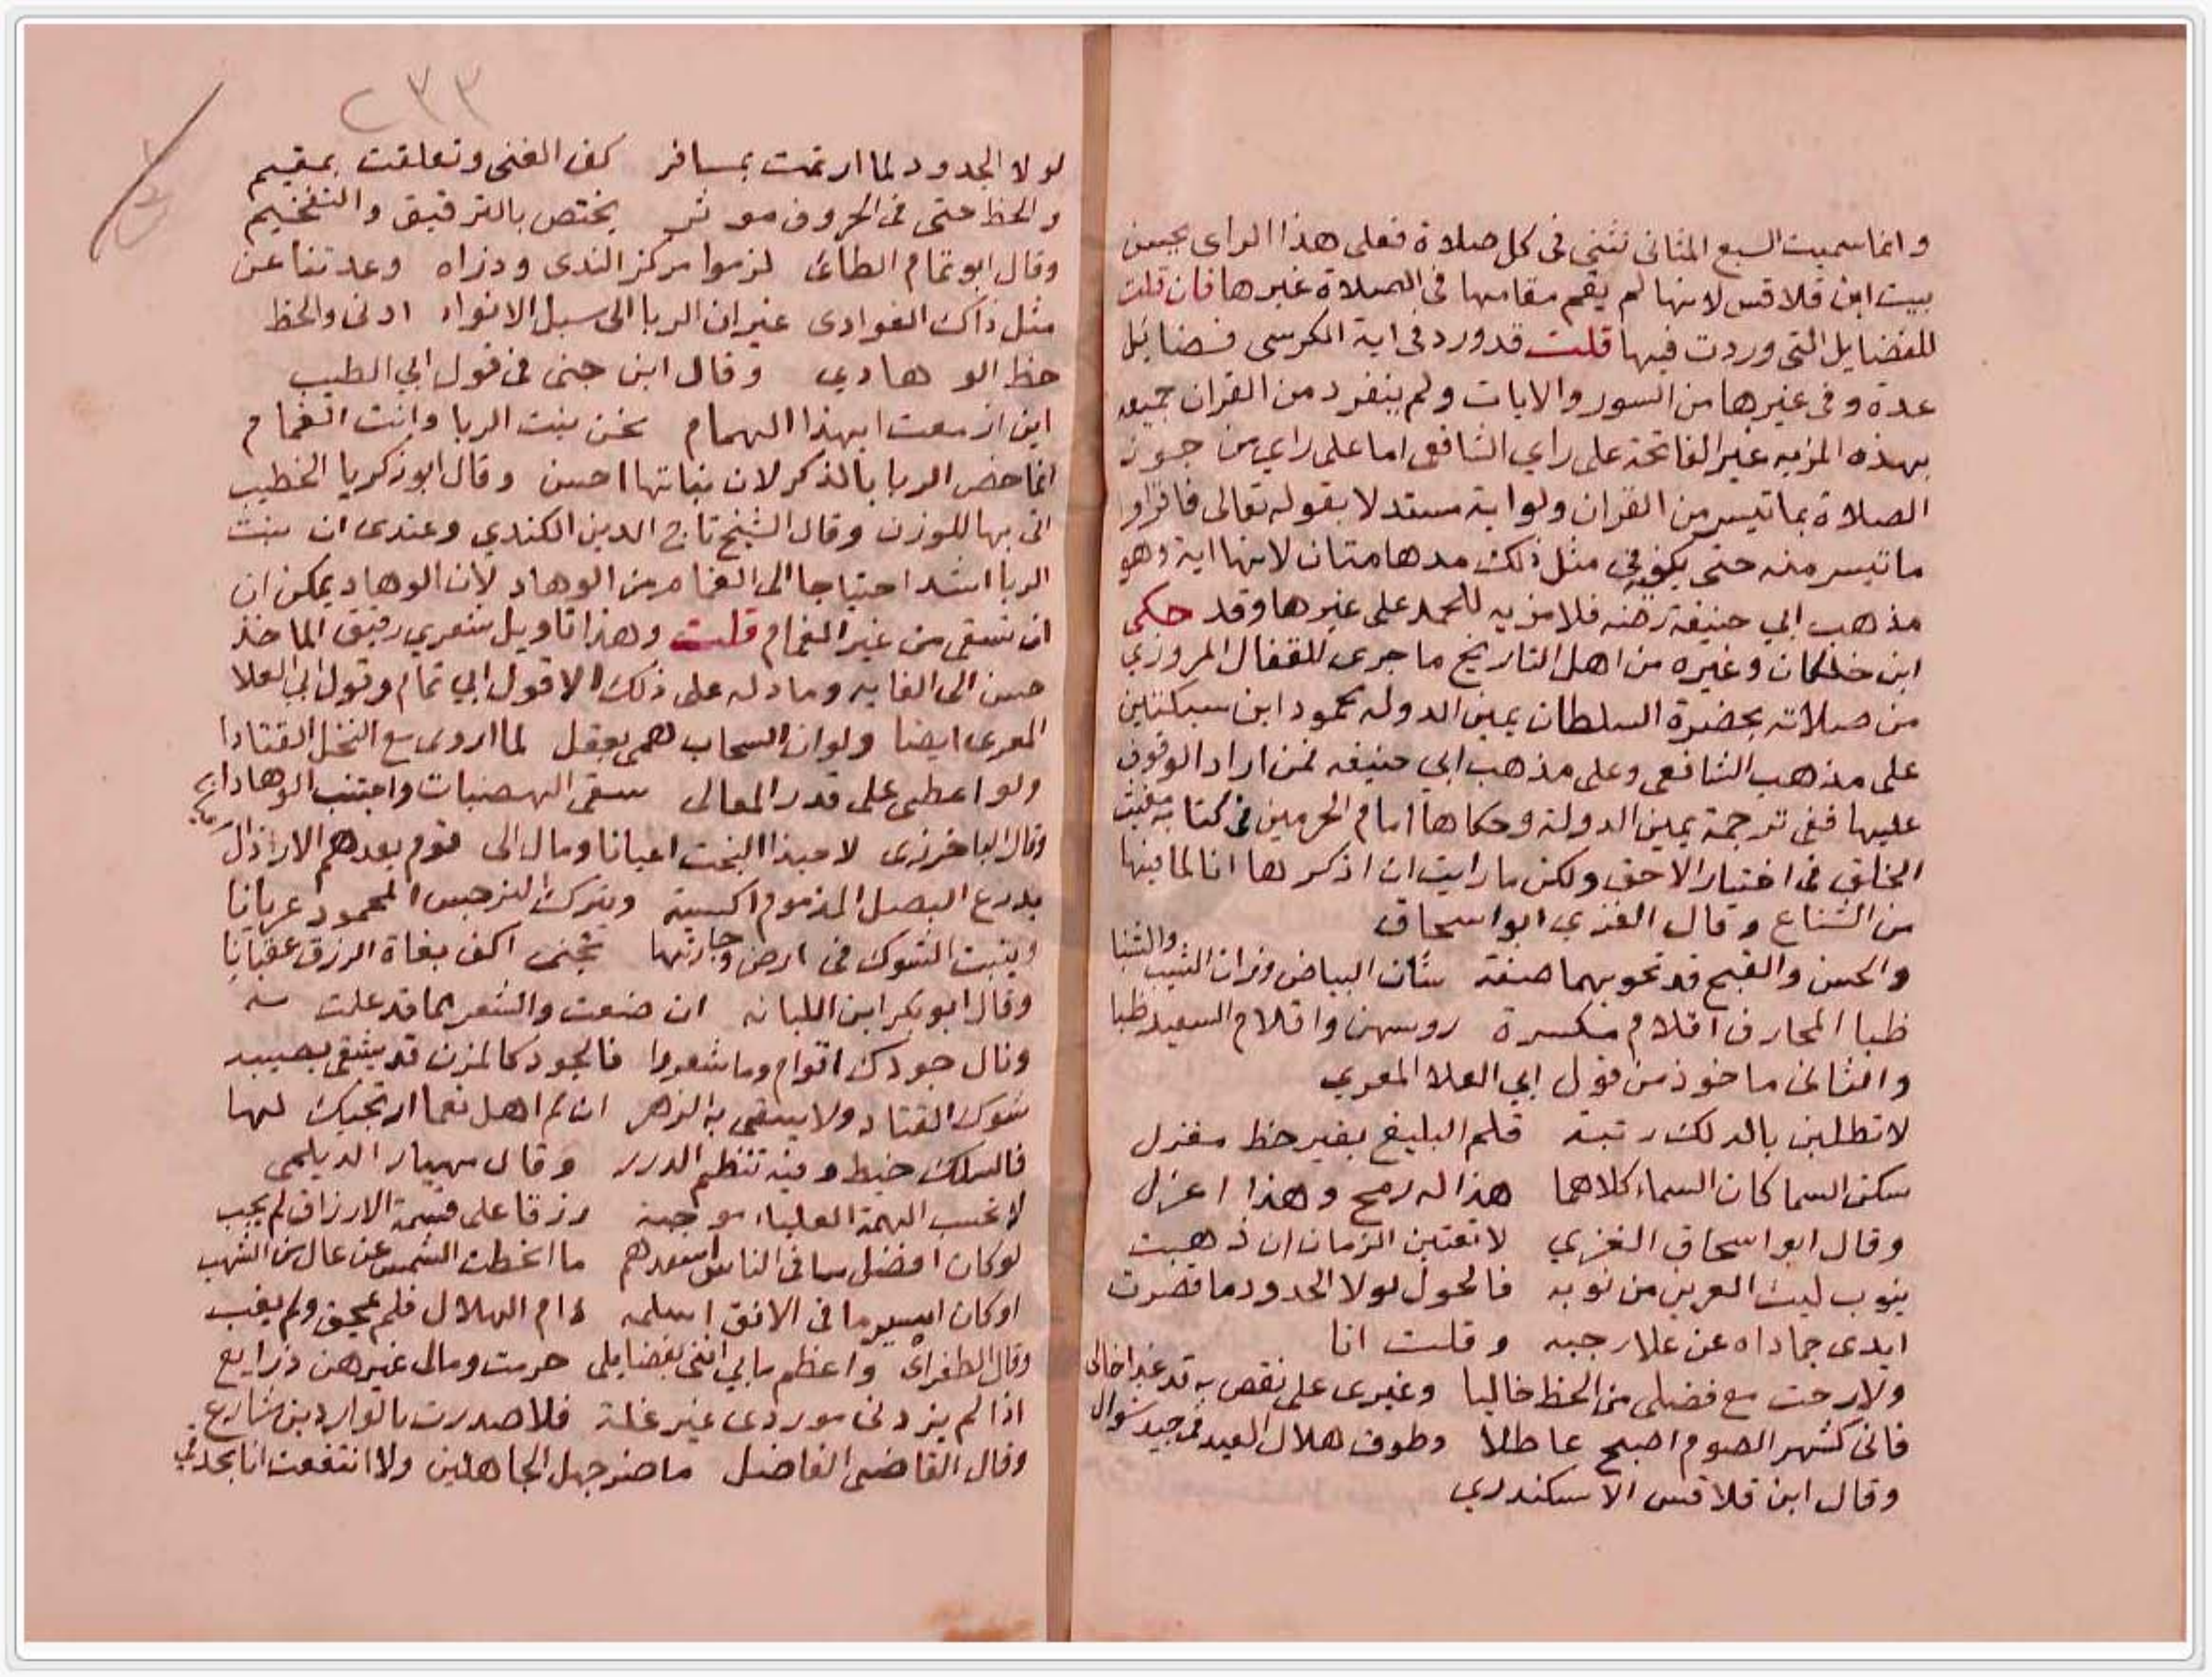 وانما سميت السبع المثانى تثنى فى كل صلاة فعلى هذا الراى يحسن
بيت ابن قلاقس لانها لم يقم مقامها فى الصلاة غيرها فان قلت
للفضايل التى وردت فيها قلت قد ورد فى اية الكرسى فضايل
عدة وفى غيرها من السور والايات ولم ينفرد من القران جميعه
بهذه المزيه غير الفاتحة على راي الشافعى اما على راي من جوز
الصلاة بما تيسر من القران ولو اية مستدلا بقوله تعالى فاقراوا
ما تيسر منه حتى يكفى فى مثل ذلك مدهامتان لانها اية وهو
مذهب ابي حنيفة رضه فلا مزيه للحمد على غيرها وقد حكى
ابن خلكان وغيره من اهل التاريخ ما جرى للقفال المروزي
من صلاته بحضرة السلطان يمين الدوله محمود ابن سبكتكين
على مذهب الشافعى وعلى مذهب ابي حنيفه فمن اراد الوقوف
عليها ففى ترجمة يمين الدولة وحكاها امام الحرمين فى كتابه مغيث
الخلق فى اختيار الاحق ولكن ما رايت ان اذكرها انا لما فيها
من الشناع وقال الغزي ابو اسحاق
والحسن والقبح قد تحويهما صفة شان البياض وزان الشيب والشنبا
ظبا المحارف اقلام مكسرة روسهن واقلام السعيد ظبا
والثانى ماخوذ من قول ابي العلا المعري
لا تطلبن بالة لك رتبة قلم البليغ بغير حظ مغزل
سكن السما كان السماء كلاهما هذا له رمح وهذا اعزل
وقال ابو اسحاق الغزي لا تعتبن الزمان ان ذهبت
ينوب ليث العرين من نوبه فالحول لولا الجدود ما قصرت
ايدى جماداه عن علا رجبه وقلت انا
ولا رحت مع فضلى من الحظ خاليا وغيرى على نقص به قد غدا خالى
فانى كشهر الصوم اصبح عاطلا وطوق هلال العيد فى جيد شوال
وقال ابن قلاقس الاسكندري
٢٣٣
لولا الجدود لما ارتمت بمسافر كف الغنى وتعلقت بمقيم
والحظ حتى فى الحروف موثر يختص بالترقيق والتفخيم
وقال ابو تمام الطائى لزموا مركز الندى وذراه وعدتنا عن
مثل ذاك العوادى غير ان الربا الى سبل الانواء ادنى والحظ
حظ الوهادي وقال ابن جنى فى قول ابي الطيب
اين ازمعت ايهذا الهمام نحن نبت الربا وانت الغمام
انما خص الربا بالذكر لان نباتها احسن وقال ابو زكريا الخطيب
اتى بها للوزن وقال الشيخ تاج الدين الكندي وعندى ان نبت
الربا اشد احتياجا الى الغمام من الوهاد لان الوهاد يمكن ان
ان تسقى من غير الغمام قلت وهذا تاويل شعري رقيق الماخذ
حسن الى الغايه وما دله على ذلك الا قول ابي تمام وقول ابي العلا
المعرى ايضا ولو ان السحاب همى بعقل لما اروى مع النخل القتادا
ولو اعطى على قدر المعالى سقى الهضبات واجتنب الوهادا
وقال الباخرزى لا حبذا البخت اعيانا ومال الى قوم بعدهم الاراذل
يدرع البصل المذموم اكسية ويترك النرجس المحمود عريانا
وينبت الشوك فى ارض وجارتها تجنى اكف بغاة الرزق عقيانا
وقال ابو بكر ابن اللبانه ان ضعت والشعر مما قد علت سه
ونال جودك اقوام وما شعروا فالجود كالمزن قد يشقى بصيبه
شوك القتاد ولا يسقى به الزهر ان لم اهل نعما ارتجيك لها
فالسلك خيط وفيه تنظم الدرر وقال مهيار الديلمى
لا تحسب الهمة العلياء موجبة رزقا على قسمة الارزاق لم يجب
لو كان افضل ما فى الناس اسعدهم ما انحطت الشمس عن عال من الشهب
او كان ايسر ما فى الافق اسلمه دام الهلال فلم يمحق ولم يغب
وقال الطغراى واعظم ما بي اننى بفضايلى حرمت ومالى غيرهن ذرايع
اذا لم يزدنى موردى غير غلة فلا صدرت بالواردين شارع
وقال القاضى الفاضل ما ضر جهل الجاهلين ولا انتفعت انا بحذقي